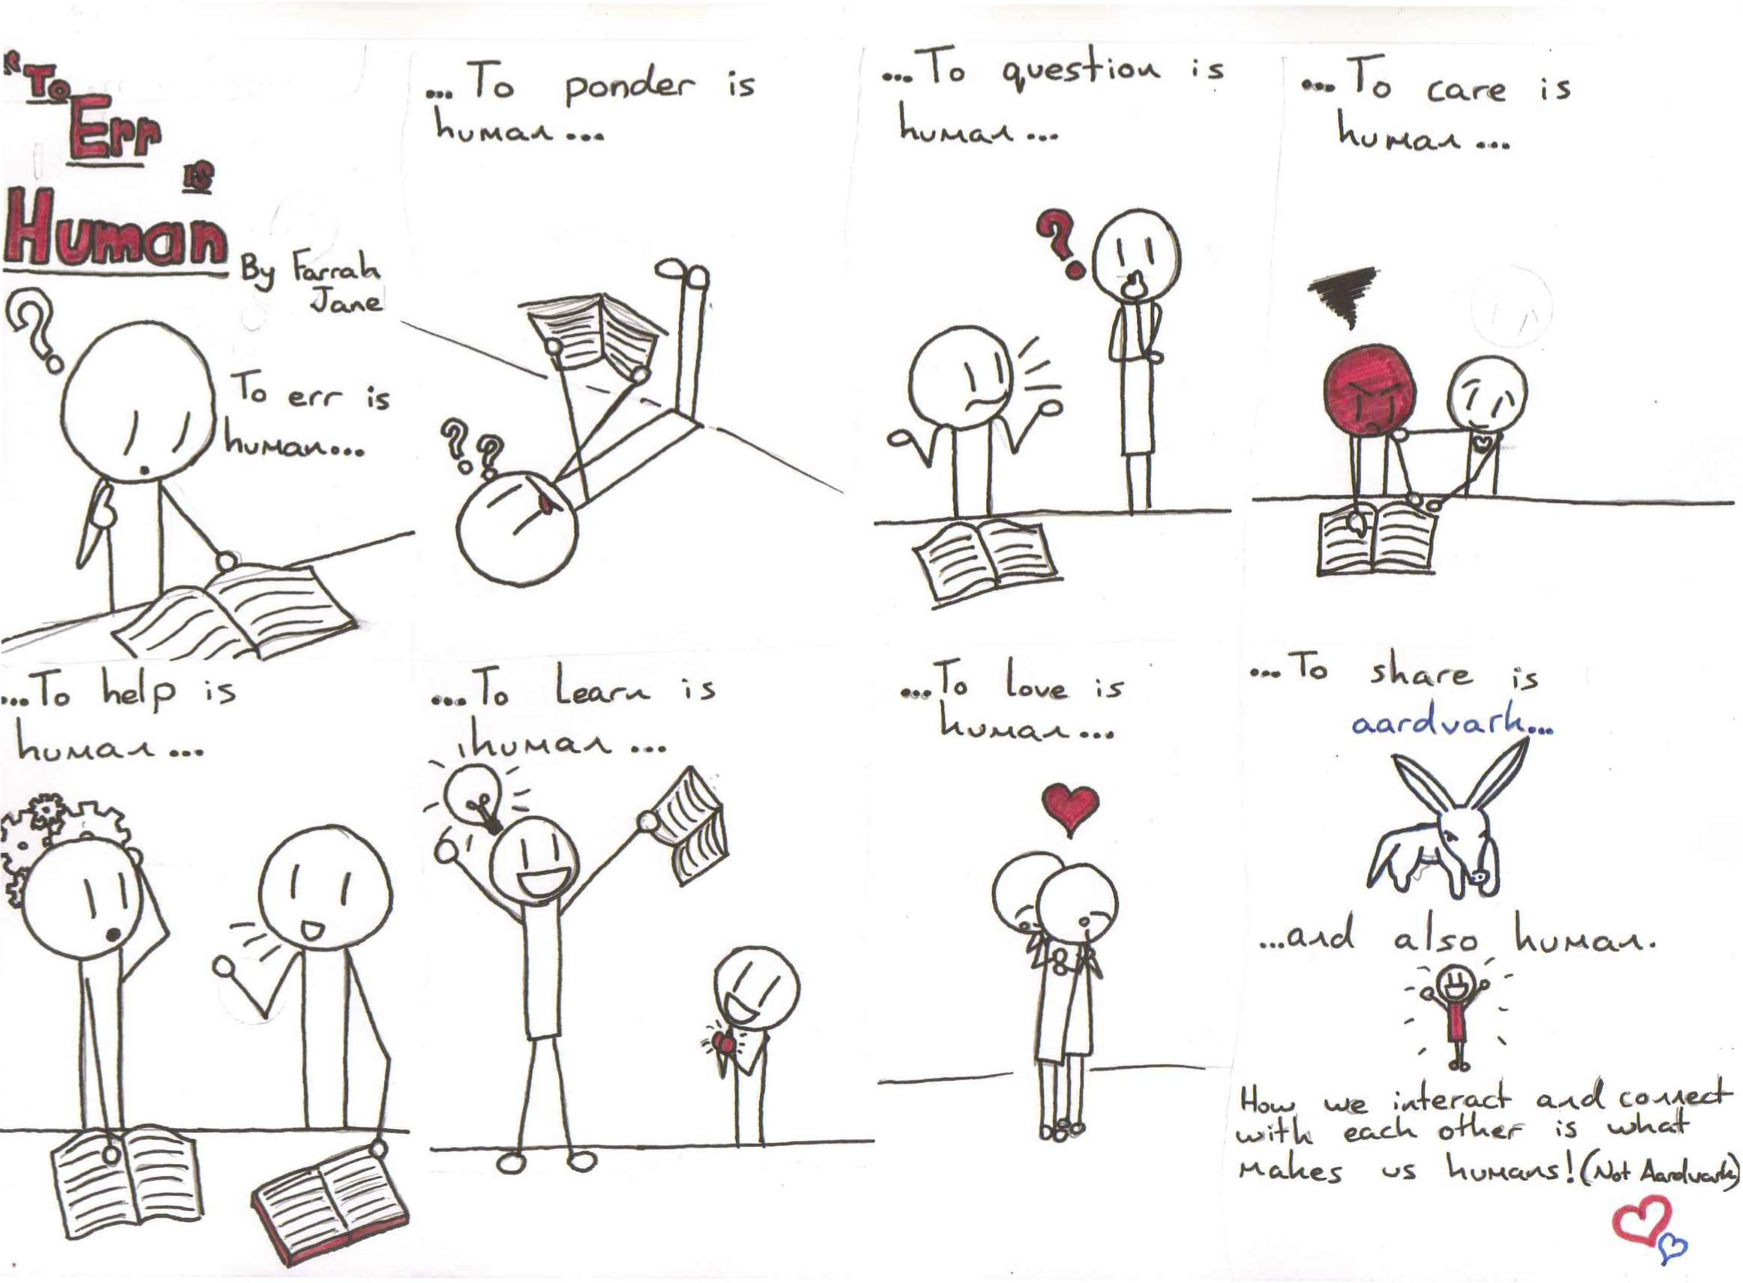 "To
Err
is
Human
By Farrah
Jane
To err is
human...
...To ponder is
human...
...To question is
human...
...To care is
human...
...To help is
human...
...To learn is
human...
...To love is
human...
...To share is
aardvark...
...and also human.
How we interact and connect
with each other is what
makes us humans! (Not Aardvark)